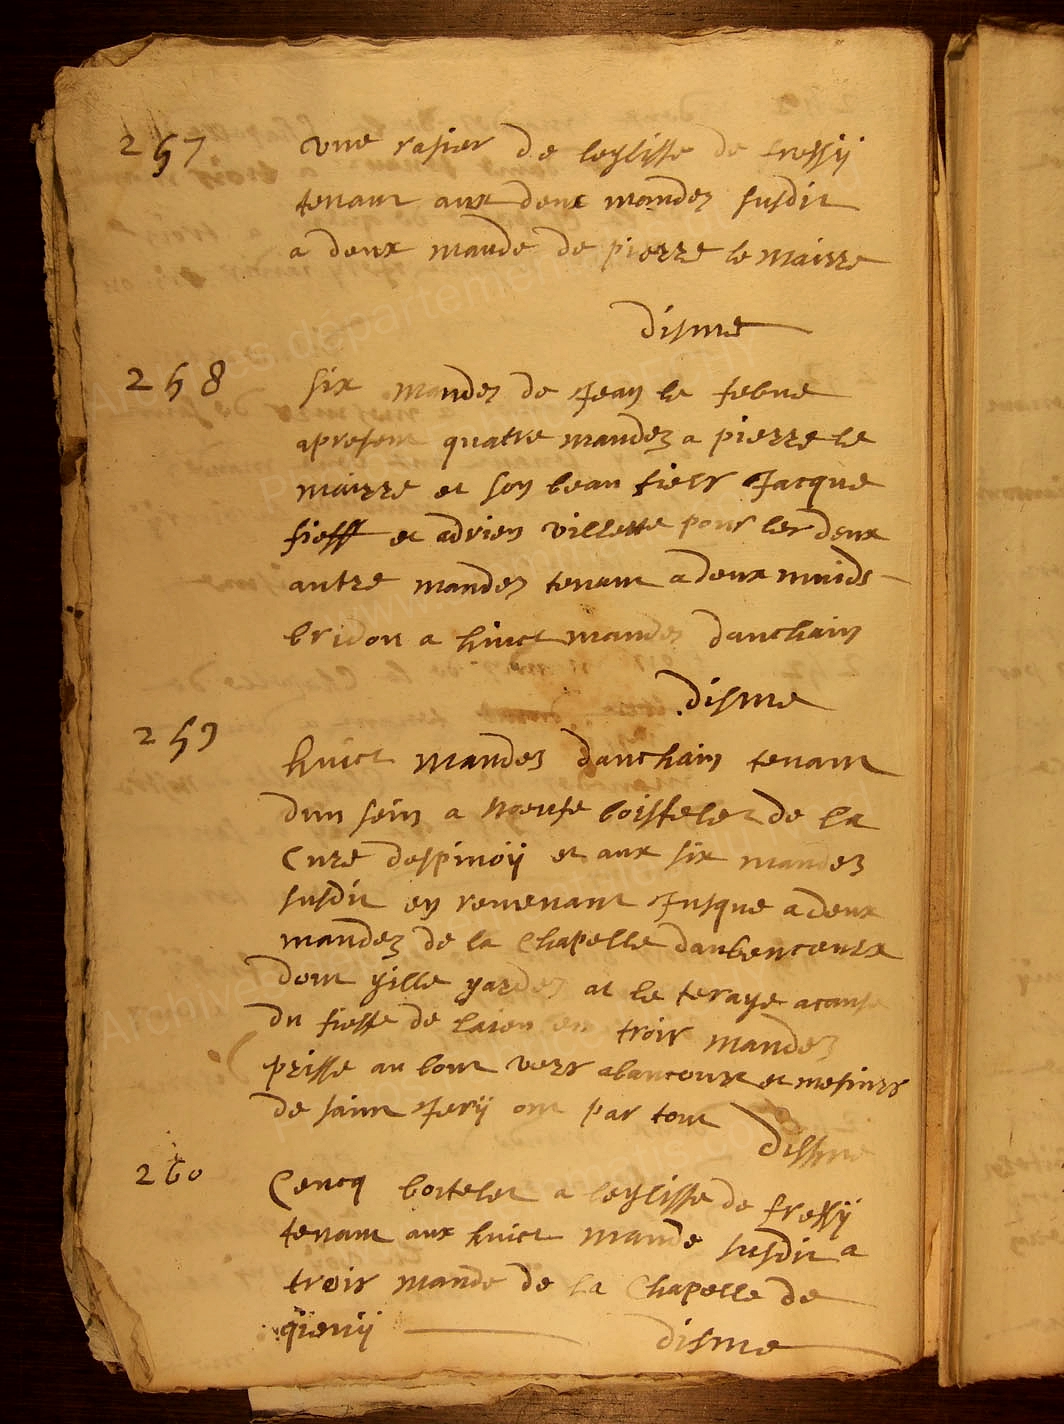 257 une rasier de leglisse de fressij
tenant aux deux mandez susdit
a deux mande de pierre le mairre
disme
258 six mandez de Jean le febue
apresent quatre mandez a pierre le
mairre et son beau fielx Jacque
fieff et adrien villette pour les deux
autre mandez tenant a deux muids
bridou a huict mandez danchain
disme
259 huict mandez danchain tenant
dun sein a noeufe boisteletz de la
Cure despinoij et aux six mandez
susdit en reuenant Jusque a deux
mandez de la Chapelle daubencourx
dont gille gardez at le teraye a cause
du fieffe de laieu en trois mandez
prisse au bout vers abancourx et mesieurs
de saint Jerij ont par tout
dissme
260 Cencq boitelet a leglisse de fressij
tenant aux huict mande susdit a
trois mande de la Chapelle de
qieuij disme